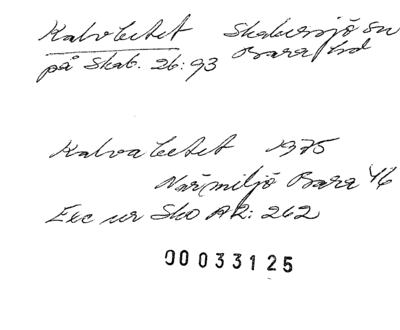 Kalvbetet Skabersjö sn
på Skab. 26:93 Bara hd
Kalvabetet 1975
Närmiljö Bara 46
Exc ur Sko AR: 262
00033125